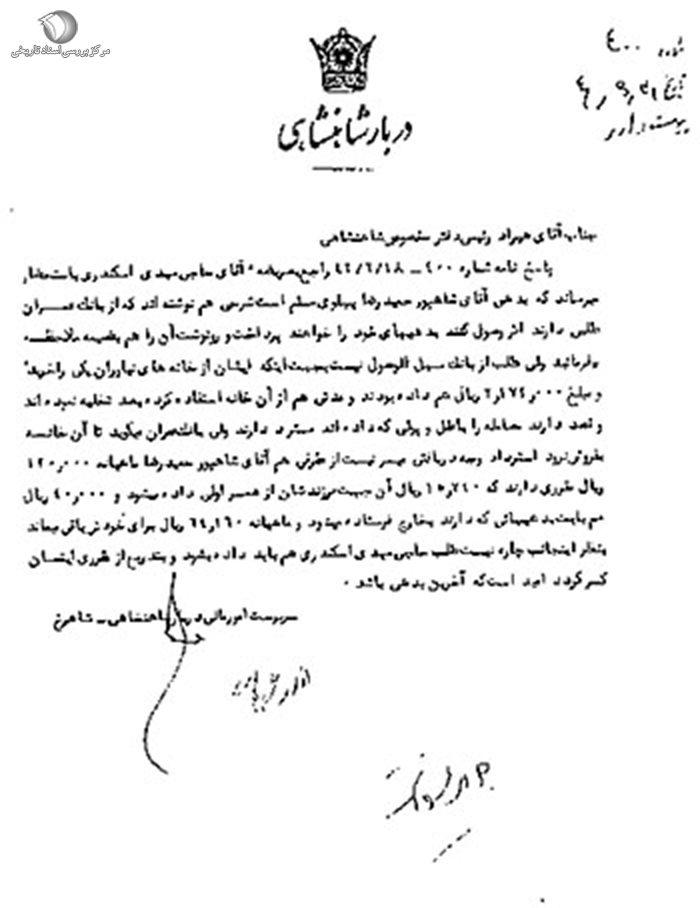 مرکز بررسی اسناد تاریخی
شماره ۴۰۰
تاریخ
پیوست دارد
دربار شاهنشاهی
جناب آقای هیراد رئیس دفتر مخصوص شاهنشاهی
پاسخ نامه شماره ۴۰۰ – ۴۲/۶/۱۸ راجع بعریضه آقای حاجی مهدی اسکندری باستحضار
میرساند که بدهی آقای شاهپور حمیدرضا پهلوی مسلم است شرحی هم نوشته اند که از بانک عمران
طلبی دارند اگر وصول کنند بدهیهای خود را خواهند پرداخت و رونوشت آن را هم بضمیمه ملاحظه
میفرمائید ولی طلب از بانک سهل الوصول نیست بجهت اینکه ایشان از خانه های نیاوران یکی را خریده
و مبلغ ۲٫۱۷۴٫۰۰۰ ریال هم داده بودند و مدتی هم از آن خانه استفاده کرده بعد تخلیه نموده اند
و قصد دارند معامله را باطل و پولی که داده اند مسترد دارند ولی بانک عمران میگوید تا آن خانه
بفروش نرود استرداد وجه دریافتی میسر نیست از طرفی هم آقای شاهپور حمیدرضا ماهیانه ۱۲۰٫۰۰۰
ریال مقرری دارند که ۱۵٫۲۴۰ ریال آن جهت فرزندشان از همسر اولی داده میشود و ۴۰٫۰۰۰ ریال
هم بابت بدهیهائی که دارند بخارج فرستاده میشود و ماهیانه ۶۴٫۱۶۰ ریال برای خودشان باقی میماند
بنظر اینجانب چاره نیست طلب حاجی مهدی اسکندری هم باید داده بشود و بتدریج از مقرری ایشان
کسر گردد امید است که آخرین بدهی باشد .
سرپرست امور مالی دربار شاهنشاهی – شاهرخ